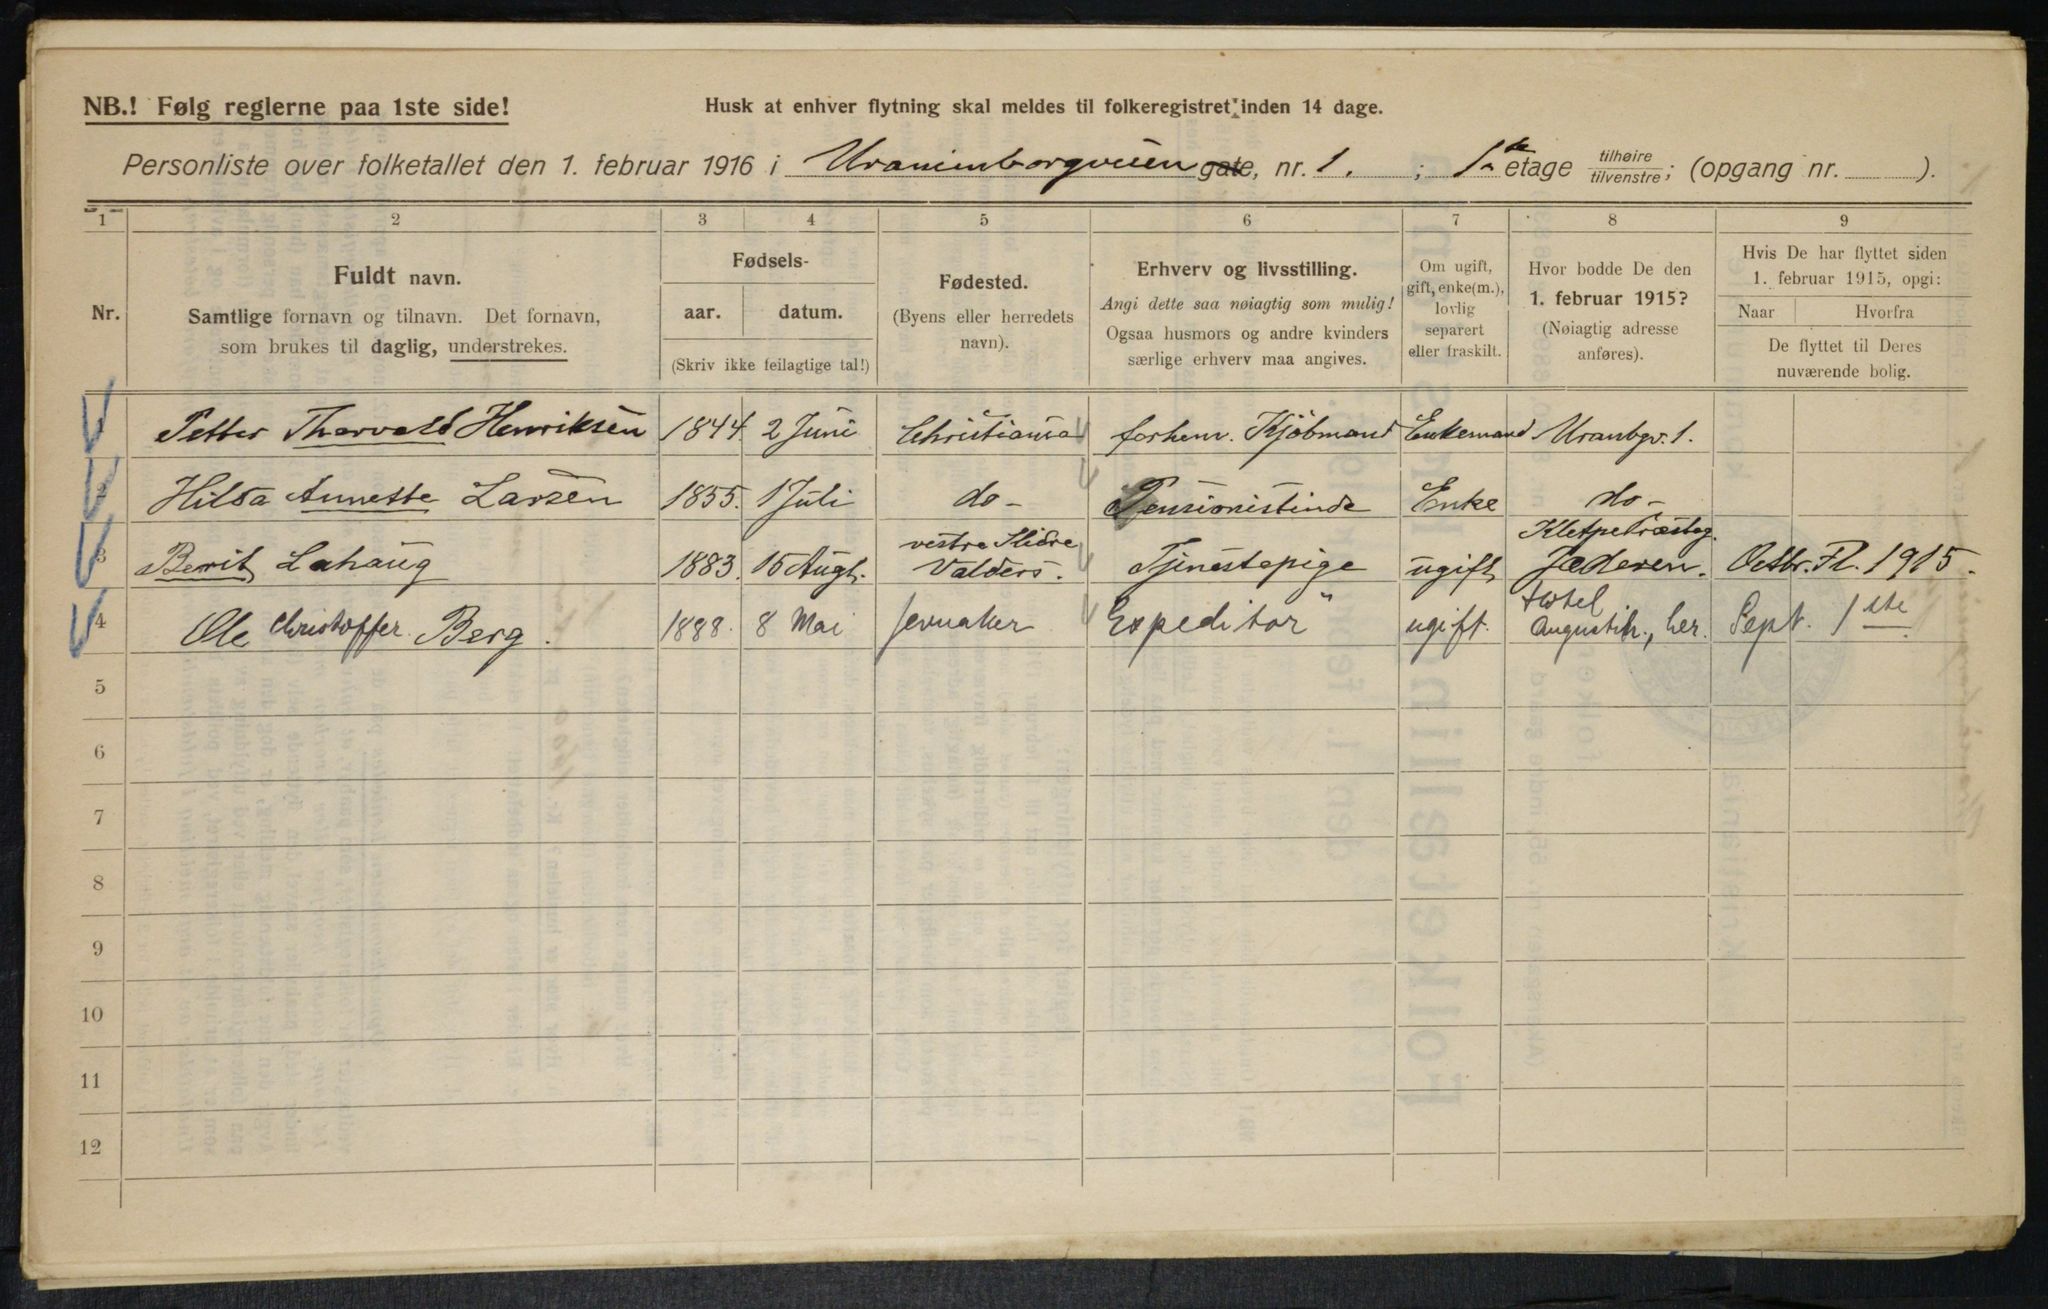 NB.! Følg reglerne paa 1ste side!
Husk at enhver flytning skal meldes til folkeregistret inden 14 dage.
Personliste over folketallet den 1. februar 1916 i Uranienborgveien gate, nr. 1. ; 1ste etage tilhøire tilvenstre; (opgang nr. ).
1 2 3 4 5 6 7 8 9
Nr.
Fuldt navn.
Samtlige fornavn og tilnavn. Det fornavn,
som brukes til daglig, understrekes.
Fødsels-
aar. datum.
(Skriv ikke feilagtige tal!)
Fødested.
(Byens eller herredets
navn).
Erhverv og livsstilling.
Angi dette saa nøiagtig som mulig!
Ogsaa husmors og andre kvinders
særlige erhverv maa angives.
Om ugift,
gift, enke(m.),
lovlig
separert
eller fraskilt.
Hvor bodde De den
1. februar 1915?
(Nøiagtig adresse
anføres).
Hvis De har flyttet siden
1. februar 1915, opgi:
Naar Hvorfra
De flyttet til Deres
nuværende bolig.
1 Petter Thorvald Henriksen 1844 2 Juni Christiania forhenv. Kjöbmand Enkemand Uranbgv. 1.
2 Hilda Annette Larsen 1855. 1 Juli do - Pensionistinde Enke do -
3 Berit Lahaug 1883. 15 Augt. vestre Slidre Valders. Tjenestepige ugift Præsteg. Jæderen. Octbr. Fl. 1915.
4 Ole Christoffer Berg. 1888. 8 Mai Jevnaker Expeditør ugift. Hotel Augustin, her. Sept. 1ste
5
6
7
8
9
10
11
12